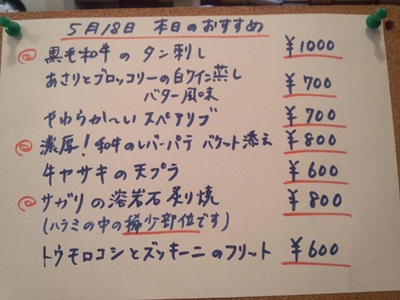 5月18日 本日のおすすめ
黒毛和牛の タン刺し ¥1000
あさりとブロッコリーの白ワイン蒸し
バター風味 ¥700
やわらか〜い スペアリブ ¥700
濃厚！和牛のレバーパテ バケット添え ¥800
牛ヤサキの天プラ ¥600
サガリの溶岩石炙り焼 ¥800
(ハラミの中の稀少部位です)
トウモロコシとズッキーニのフリット ¥600